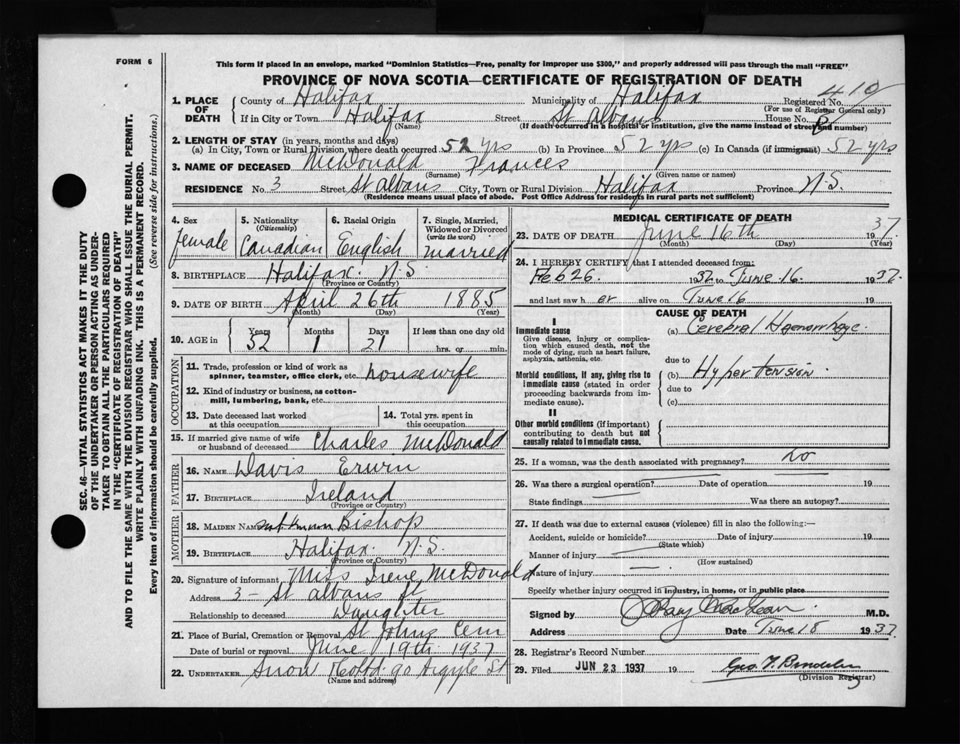 FORM 6
This form if placed in an envelope, marked "Dominion Statistics—Free, penalty for improper use $300," and properly addressed will pass through the mail "FREE"
PROVINCE OF NOVA SCOTIA—CERTIFICATE OF REGISTRATION OF DEATH
1. PLACE OF DEATH County of Halifax Municipality of Halifax Registered No. 410
(For use of Registrar General only)
If in City or Town Halifax Street St Albans House No.
(Name) (If death occurred in a hospital or institution, give the name instead of street and number)
2. LENGTH OF STAY (in years, months and days)
(a) In City, Town or Rural Division, where death occurred 52 yrs (b) In Province 52 yrs (c) In Canada (if immigrant) 52 yrs
3. NAME OF DECEASED McDonald Frances
(Surname) (Given name or names)
RESIDENCE No. 3 Street St Albans City, Town or Rural Division Halifax Province N.S.
(Residence means usual place of abode. Post Office Address for residents in rural parts not sufficient)
4. Sex female
5. Nationality (Citizenship) Canadian
6. Racial Origin English
7. Single, Married, Widowed or Divorced (write the word) married
8. BIRTHPLACE Halifax N.S.
(Province or Country)
9. DATE OF BIRTH April 26th 1885
(Month) (Day) (Year)
10. AGE in Years 52 Months 1 Days 21 If less than one day old hrs. or min.
OCCUPATION
11. Trade, profession or kind of work as spinner, teamster, office clerk, etc. housewife
12. Kind of industry or business, as cotton-mill, lumbering, bank, etc.
13. Date deceased last worked at this occupation
14. Total yrs. spent in this occupation
15. If married give name of wife or husband of deceased Charles McDonald
FATHER
16. NAME Davis Erwin
17. BIRTHPLACE Ireland
(Province or Country)
MOTHER
18. MAIDEN NAME Bishop
19. BIRTHPLACE Halifax N.S.
(Province or Country)
20. Signature of informant Miss Irene McDonald
Address 3 - St Albans St
Relationship to deceased Daughter
21. Place of Burial, Cremation or Removal St Johns Cem
Date of burial or removal June 19th 1937
22. UNDERTAKER Snow 90 Argyle St
(Name and address)
MEDICAL CERTIFICATE OF DEATH
23. DATE OF DEATH June 16th 1937.
(Month) (Day) (Year)
24. I HEREBY CERTIFY that I attended deceased from:
Feb 26 1932 to June 16. 1937.
and last saw her alive on June 16 19
CAUSE OF DEATH
I
Immediate cause (a) Cerebral Haemorrhage.
Give disease, injury or complication which caused death, not the mode of dying, such as heart failure, asphyxia, asthenia, etc.
due to
Morbid conditions, if any, giving rise to immediate cause (stated in order proceeding backwards from immediate cause).
(b) Hypertension.
due to
(c)
II
Other morbid conditions (if important) contributing to death but not causally related to immediate cause.
25. If a woman, was the death associated with pregnancy? no
26. Was there a surgical operation? Date of operation 19
State findings Was there an autopsy?
27. If death was due to external causes (violence) fill in also the following:—
Accident, suicide or homicide? Date of injury 19
(State which)
Manner of injury
(How sustained)
Nature of injury
Specify whether injury occurred in industry, in home, or in public place
Signed by M.D.
Address Date June 18 1937.
28. Registrar's Record Number
29. Filed JUN 23 1937 19
(Division Registrar)
SEC. 46—VITAL STATISTICS ACT MAKES IT THE DUTY
OF THE UNDERTAKER OR PERSON ACTING AS UNDER-
TAKER TO OBTAIN ALL THE PARTICULARS REQUIRED
IN THE "CERTIFICATE OF REGISTRATION OF DEATH"
AND TO FILE THE SAME WITH THE DIVISION REGISTRAR WHO SHALL ISSUE THE BURIAL PERMIT.
WRITE PLAINLY WITH UNFADING INK. THIS IS A PERMANENT RECORD.
Every item of information should be carefully supplied. (See reverse side for instructions.)